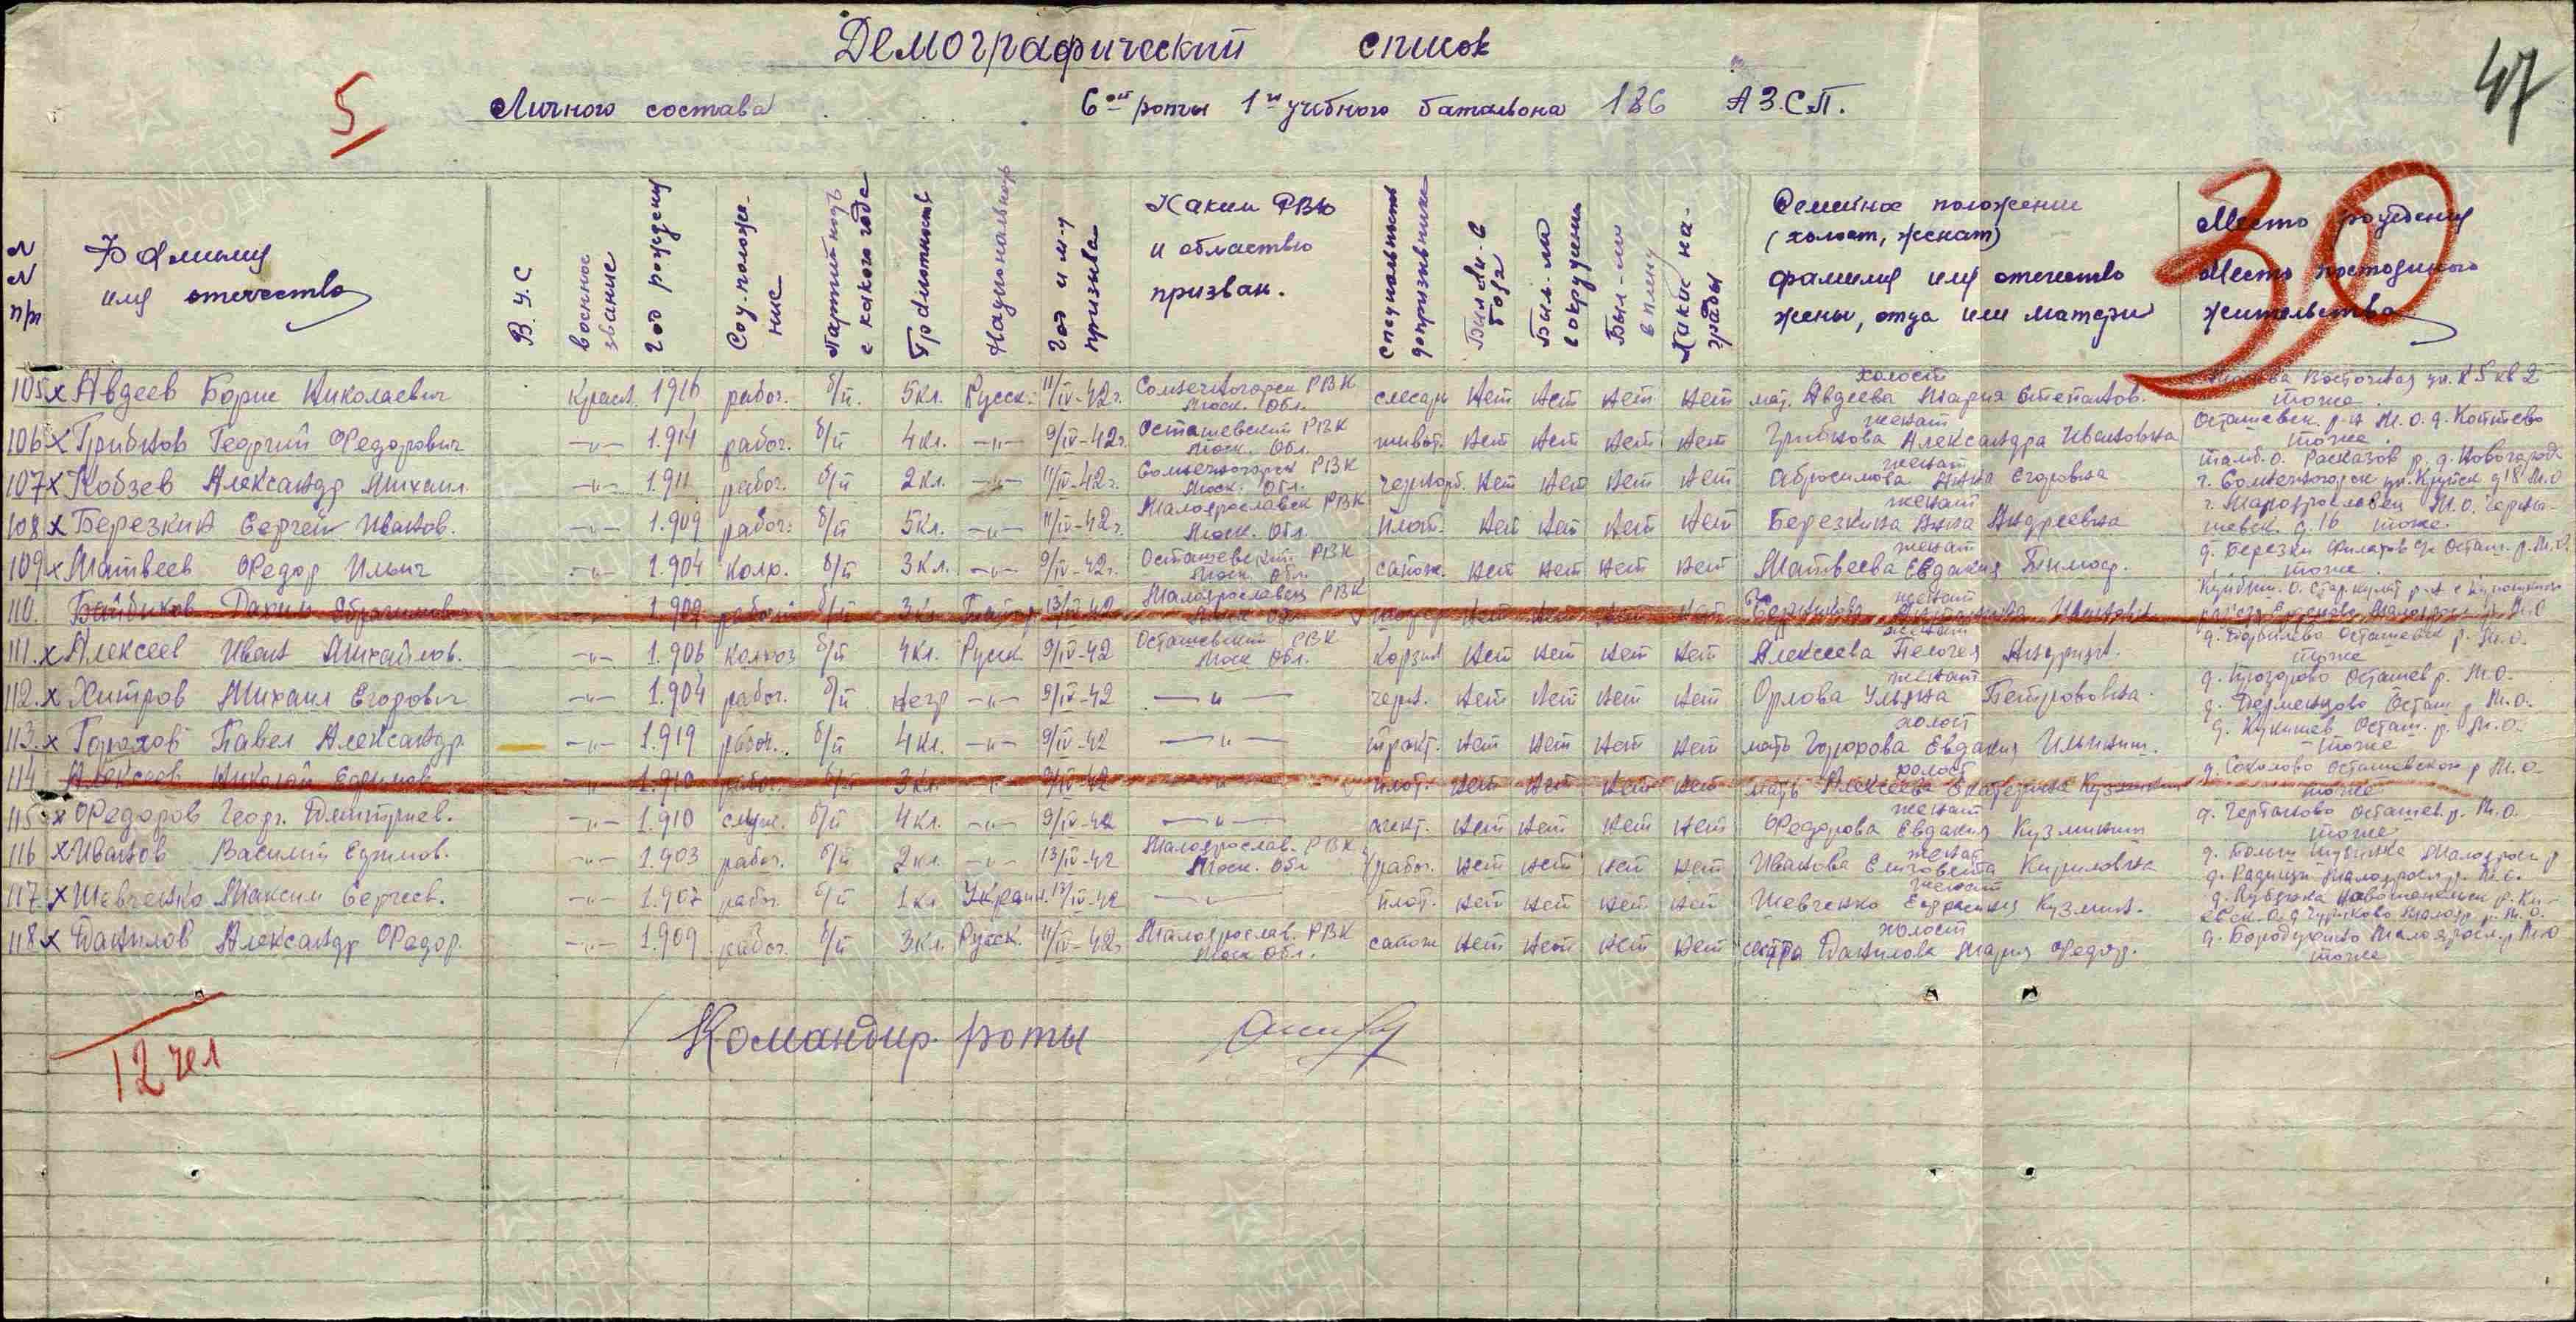 Демографический список
47
5
Личного состава 6ой роты 1го учебного батальона 186 АЗСП.
30
N N п/п
Фамилия имя отчество
В.У.С
военное звание
Год рождения
Соц. положение
Партийность с какого года
Грамотность
Национальность
Год и м-ц призыва
Каким РВК и областью призван.
специальность допризывника
Был ли в боях
Был-ли в окружении
Был-ли в плену
Какие награды
Семейное положение (холост, женат) фамилия имя отчество жены, отца или матери
Место рождения Место постоянного жительства
105 х Авдеев Борис Николаевич красн. 1916 рабоч. б/п. 5 кл. Русск. 11/IV-42г. Солнечногорск РВК Моск. Обл. слесарь нет нет нет нет холост мат. Авдеева Мария Степанов. Москва Восточная ул. 5 кв 2 тоже.
106 х Грибков Георгий Федорович -"- 1.914 рабоч. б/п 4 кл. -"- 9/IV-42г. Осташевский РВК Моск. Обл. живот. нет нет нет нет женат Грибкова Александра Ивановна Осташевск. р-н М.О. д. тоже.
107 х Кобзев Александр Михаил. -"- 1.911 рабоч. б/п 2 кл. -"- 11/IV-42г. Солнечногорск РВК Моск. Обл. чернораб. нет нет нет нет женат Абросимова Анна Егоровна тамб. о. Расказов р. д. г. Солнечногорск ул. д 18 М.О
108 х Березкин Сергей Иванов. -"- 1.909 рабоч. б/п 5 кл. -"- 11/IV-42г. Малоярославск РВК Моск. Обл. плот. нет нет нет нет женат Березкина Анна Андреевна г. Малоярославец М.О. д. 16 тоже.
109 х Матвеев Федор Ильич -"- 1.904 колх. б/п 3 кл. -"- 9/IV-42г. Осташевский РВК Моск. Обл. сапож. нет нет нет нет женат Матвеева Евдокия Тимоф. д. Березки Осташ. р. М.О. тоже
110. Байбиков 1.909 рабочий б/п 3 кл. Татар 13/IV-42 Малоярославец РВК Моск Обл. нет нет нет нет женат Ивановна М.О
111. х Алексеев Иван Михайлов. -"- 1.906 колхоз б/п 4 кл. Русск 9/IV-42 Осташевский РВК Моск Обл. нет нет нет нет женат Алексеева Пелогея Андриян. д. Осташевск р. М.О. тоже
112. х Хитров Михаил Егорович -"- 1.904 рабоч. б/п негр -"- 9/IV-42 -"- черн. нет нет нет нет женат Орлова Ульяна Петрововна. д. Осташев р. М.О. д. Осташ р М.О.
113. х Горохов Павел Александр. -"- 1.919 рабоч. б/п 4 кл. -"- 9/IV-42 -"- тракт. нет нет нет нет холост мать Евдокия Ильинич. д. Осташ. р. М.О. тоже
114 Алексеев Николай Ефимов. -"- 1.910 рабоч. б/п 3 кл. -"- 9/IV-42 -"- плот. нет нет нет нет холост мать Алексеева Екатерина д. Соколово Осташевском р М.О. тоже
115 х Федоров Георг. Дмитриев. -"- 1.910 служ. б/п 4 кл. -"- 9/IV-42 -"- нет нет нет нет женат Федорова Евдокия Кузминич д. Чертаново Осташев. р. М.О. тоже
116 х Иванов Василий Ефимов. -"- 1.903 рабоч. б/п 2 кл. -"- 13/IV-42 Малоярослав. РВК Моск. Обл рабоч. нет нет нет нет женат Иванова Кириловна д. Малояросл р д. Радищи Малояросл. р. М.О.
117 х Шевченко Максим Сергеев. -"- 1.907 рабоч. б/п 1 кл Украин. 13/IV-42 -"- плот. нет нет нет нет женат Шевченко Кузмин. д. р. Ки- евск. о. д Малояр. р. М.О.
118 х Данилов Александр Федор. -"- 1.909 рабоч. б/п 3 кл. Русск. 11/IV-42г. Малоярослав. РВК Моск Обл. сапож нет нет нет нет холост сестра Данилова Мария Федор. д. Бородухино Малояросл. р М.О тоже
12 чел
Командир роты